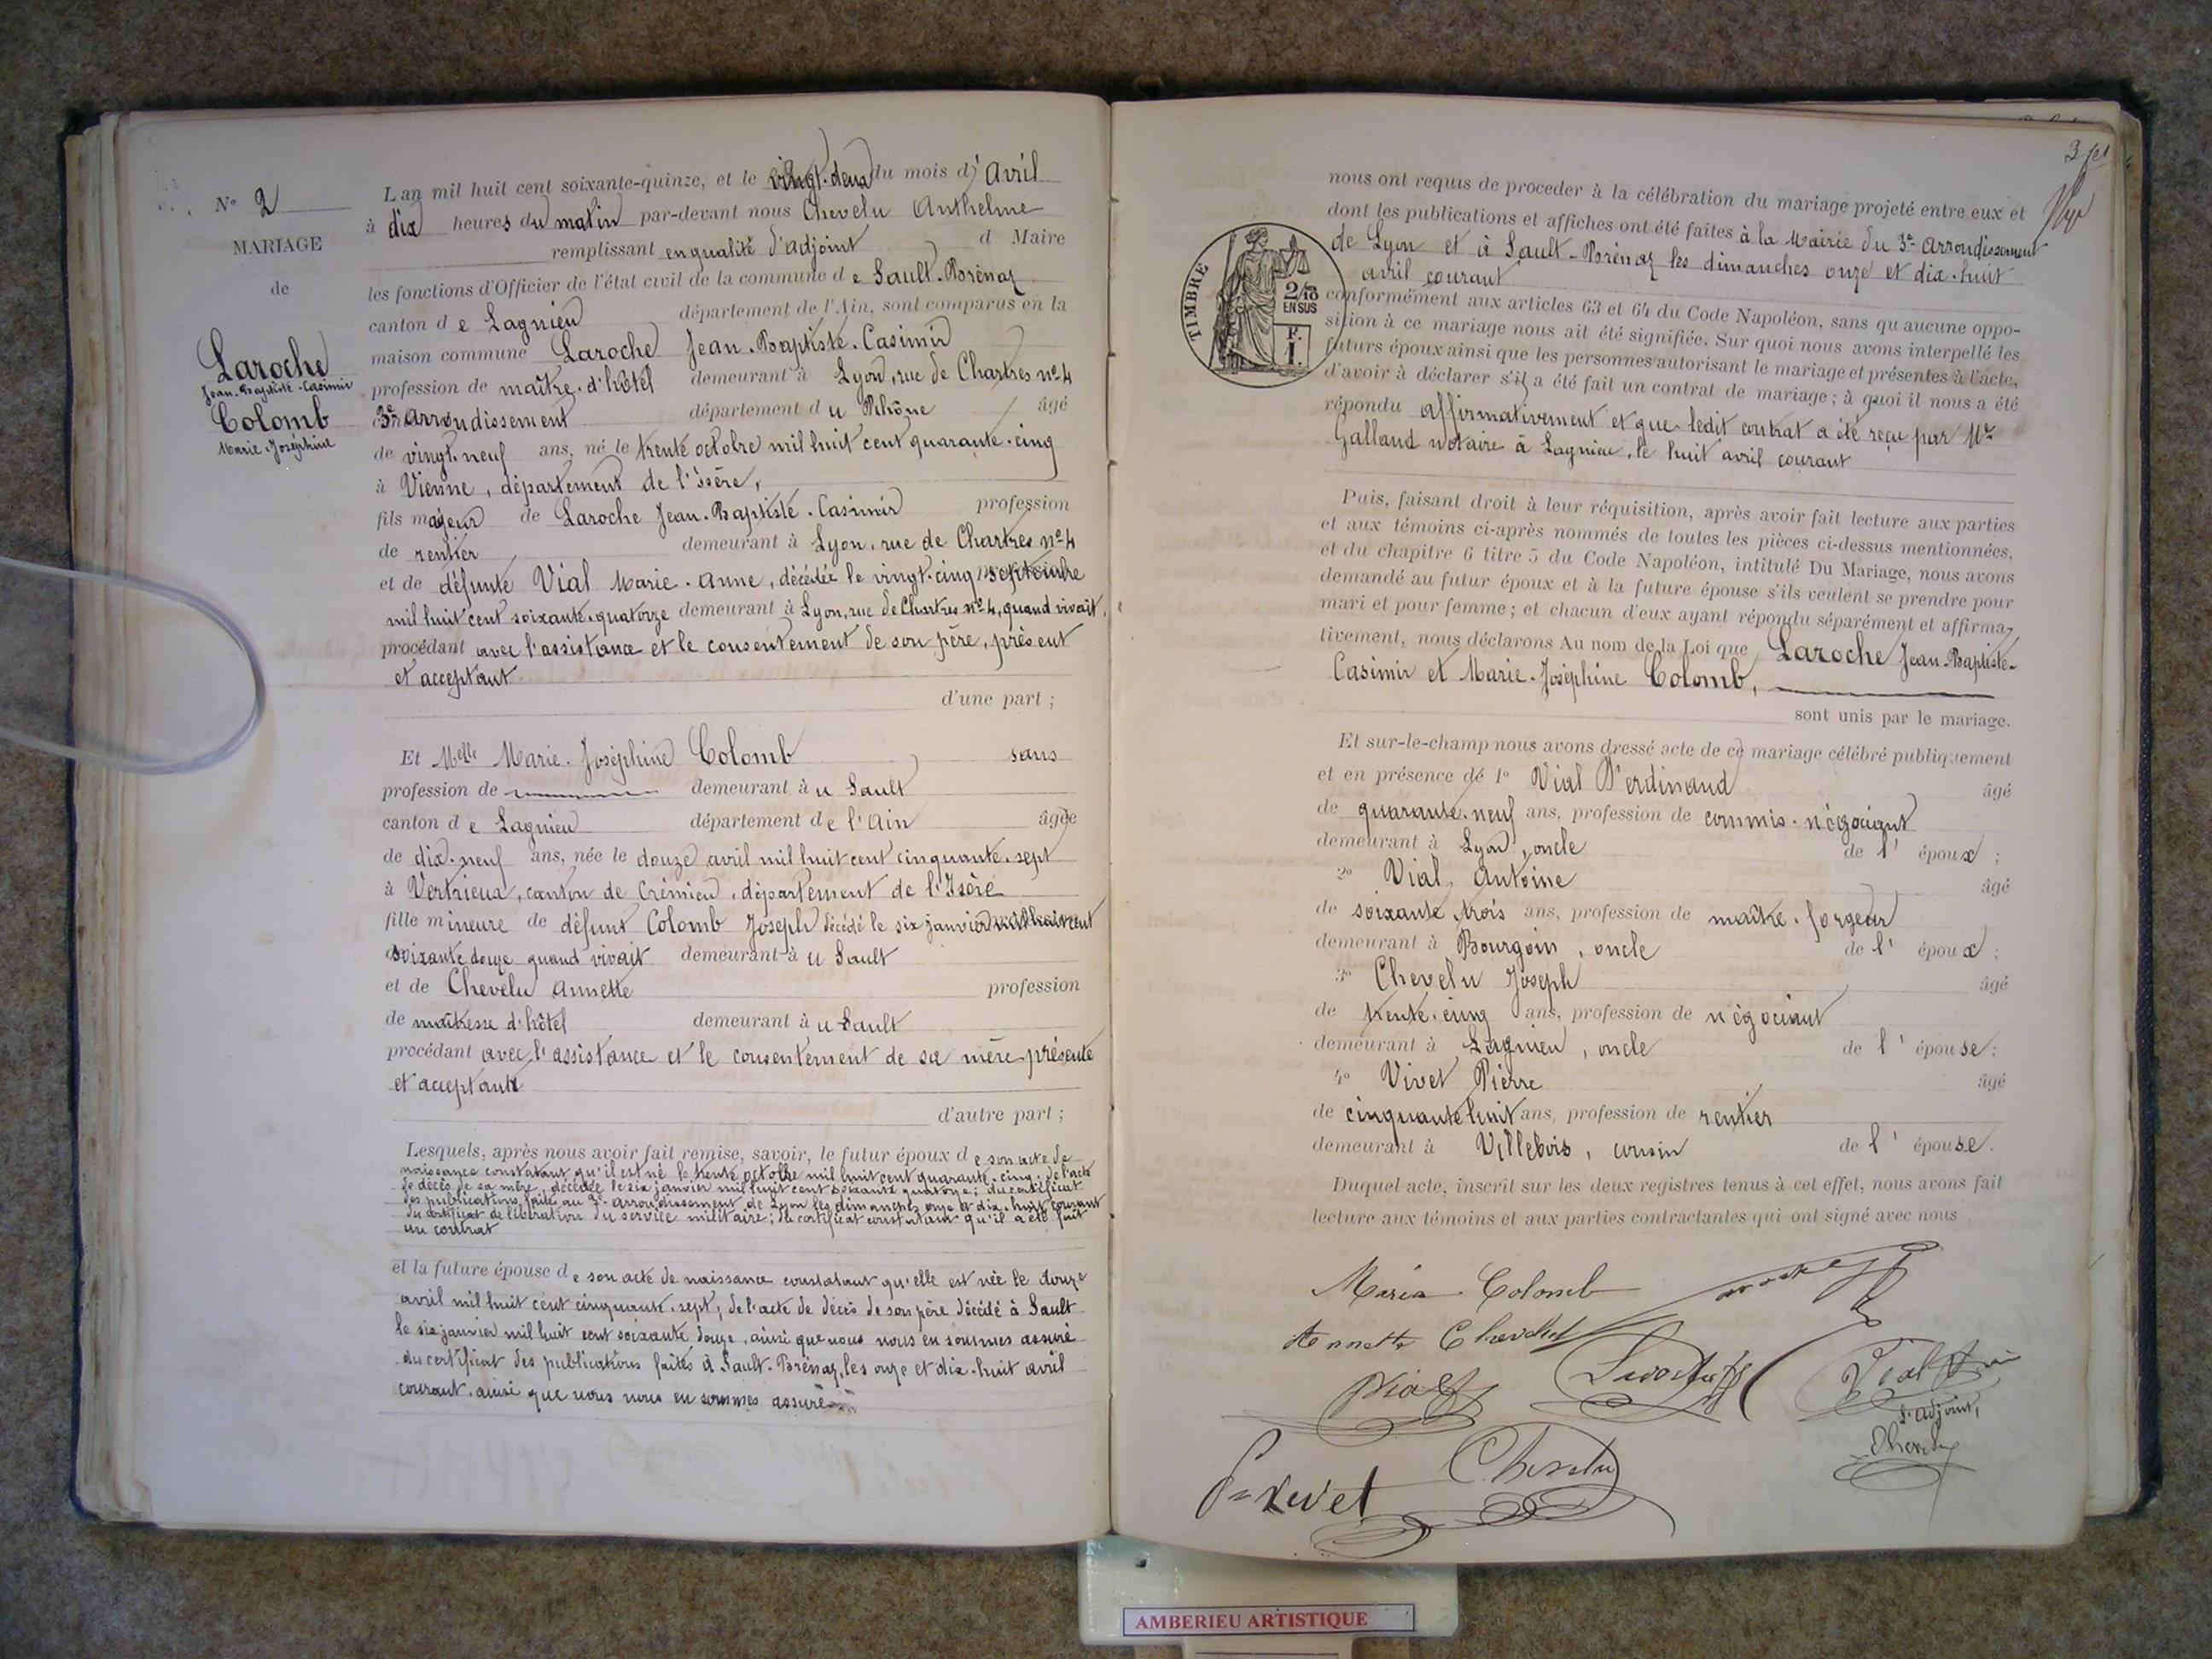 N° 2
MARIAGE
de
Laroche
Jean-Baptiste-Casimir
Colomb
Marie Joséphine
L an mil huit cent soixante-quinze, et le vingt-deux du mois d' Avril
à dix heures du matin par-devant nous Chevelu Anthelme
remplissant en qualité d'adjoint d Maire
les fonctions d'Officier de l'état civil de la commune d e Sault-Brénaz
canton d e Lagnieu département de l'Ain, sont comparus en la
maison commune Laroche Jean-Baptiste-Casimir
profession de maître-d'hôtel demeurant à Lyon, rue de Chartres n° 4
3e arrondissement département d u Rhône âgé
de vingt-neuf ans, né le trente octobre mil huit cent quarante-cinq
à Vienne, département de l'Isère,
fils majeur de Laroche Jean-Baptiste-Casimir profession
de rentier demeurant à Lyon, rue de Chartres n° 4
et de défunte Vial Marie-Anne, décédée le vingt-cinq septembre
mil huit cent soixante-quatorze demeurant à Lyon, rue de Chartres n° 4, quand vivait,
procédant avec l'assistance et le consentement de son père, présent
et acceptant
d'une part ;
Et Melle Marie-Joséphine Colomb sans
profession de demeurant à u Sault
canton d e Lagnieu département de l'Ain âgée
de dix-neuf ans, née le douze avril mil huit cent cinquante-sept
à Vertrieux, canton de Crémieu, département de l'Isère
fille mineure de défunt Colomb Joseph décédé le six janvier mil huit cent
soixante douze quand vivait demeurant à u Sault
et de Chevelu Annette profession
de maîtresse d'hôtel demeurant à u Sault
procédant avec l'assistance et le consentement de sa mère présente
et acceptante
d'autre part ;
Lesquels, après nous avoir fait remise, savoir, le futur époux d e son acte de
naissance constatant qu'il est né le trente octobre mil huit cent quarante-cinq; de l'acte
de décès de sa mère, décédée le six janvier mil huit cent soixante quatorze; du certificat
des publications faites au 3e arrondissement de Lyon les dimanches onze et dix-huit courant
du certificat de libération du service militaire; du certificat constatant qu'il a été fait
un contrat
et la future épouse d e son acte de naissance constatant qu'elle est née le douze
avril mil huit cent cinquante-sept, de l'acte de décès de son père décédé à Sault
le six janvier mil huit cent soixante douze, ainsi que nous nous en sommes assuré
du certificat des publications faites à Sault-Brénaz, les onze et dix-huit avril
courant, ainsi que nous nous en sommes assuré
3
nous ont requis de procéder à la célébration du mariage projeté entre eux et
dont les publications et affiches ont été faites à la Mairie du 3e arrondissement
de Lyon et à Sault-Brénaz les dimanches onze et dix-huit
avril courant
TIMBRE
2/10
EN SUS
F.
1.
conformément aux articles 63 et 64 du Code Napoléon, sans qu aucune oppo-
sition à ce mariage nous ait été signifiée. Sur quoi nous avons interpellé les
futurs époux ainsi que les personnes autorisant le mariage et présentes à l'acte,
d'avoir à déclarer s'il a été fait un contrat de mariage ; à quoi il nous a été
répondu affirmativement et que ledit contrat a été reçu par Me
Galland notaire à Lagnieu, le huit avril courant
Puis, faisant droit à leur réquisition, après avoir fait lecture aux parties
et aux témoins ci-après nommés de toutes les pièces ci-dessus mentionnées,
et du chapitre 6 titre 5 du Code Napoléon, intitulé Du Mariage, nous avons
demandé au futur époux et à la future épouse s'ils veulent se prendre pour
mari et pour femme ; et chacun d'eux ayant répondu séparément et affirma-
tivement, nous déclarons Au nom de la Loi que Laroche Jean-Baptiste-
Casimir et Marie-Joséphine Colomb,
sont unis par le mariage.
Et sur-le-champ nous avons dressé acte de ce mariage célébré publiquement
et en présence de 1° Vial Ferdinand âgé
de quarante-neuf ans, profession de commis-négociant
demeurant à Lyon, oncle de l' époux ;
2° Vial, Antoine âgé
de soixante trois ans, profession de maître-forgeur
demeurant à Bourgoin, oncle de l' époux ;
3° Chevelu Joseph âgé
de trente-cinq ans, profession de négociant
demeurant à Lagnieu, oncle de l' épouse ;
4° Vivet Pierre âgé
de cinquante huit ans, profession de rentier
demeurant à Villebois, cousin de l' épouse.
Duquel acte, inscrit sur les deux registres tenus à cet effet, nous avons fait
lecture aux témoins et aux parties contractantes qui ont signé avec nous
Maria Colomb
Annette Chevelu
Vial
Vial
L'adjoint,
Chevelu
Chevelu
Vivet
AMBERIEU ARTISTIQUE